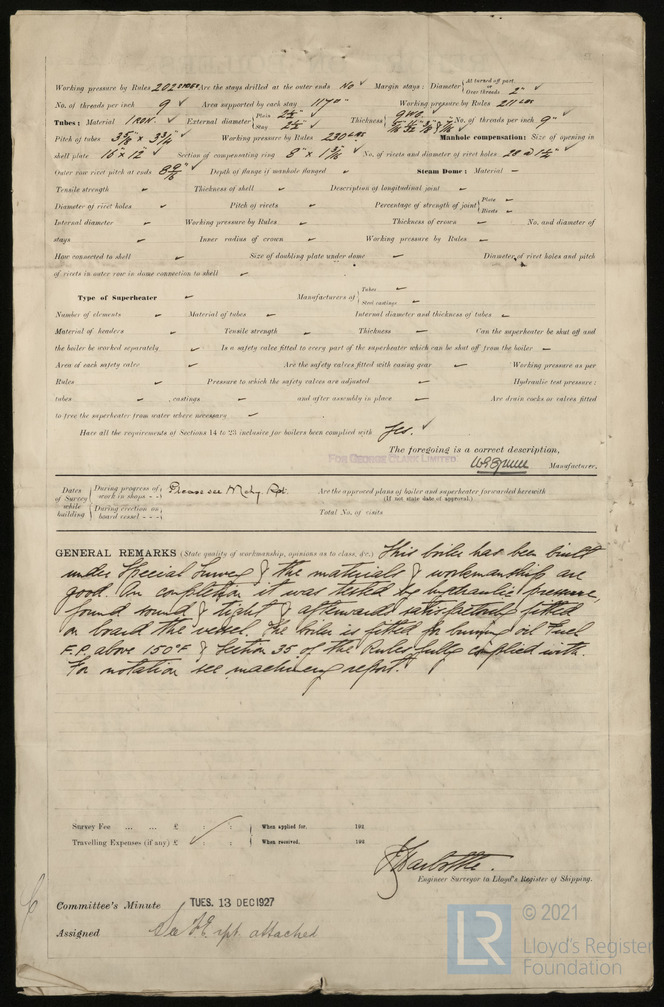 Working pressure by Rules 202 LBS Are the stays drilled at the outer ends No Margin stays: Diameter { At turned off part, or Over threads 2"
No. of threads per inch 9 Area supported by each stay Working pressure by Rules 211 LBS
Tubes: Material IRON. External diameter { Plain 2½" Stay 2½" Thickness { 9 WG No. of threads per inch 9"
Pitch of tubes Working pressure by Rules 230 LBS Manhole compensation: Size of opening in
shell plate 16" x 12" Section of compensating ring No. of rivets and diameter of rivet holes
Outer row rivet pitch at ends Depth of flange if manhole flanged – Steam Dome: Material –
Tensile strength – Thickness of shell – Description of longitudinal joint –
Diameter of rivet holes – Pitch of rivets – Percentage of strength of joint { Plate – Rivets –
Internal diameter – Working pressure by Rules – Thickness of crown – No. and diameter of
stays – Inner radius of crown – Working pressure by Rules –
How connected to shell – Size of doubling plate under dome – Diameter of rivet holes and pitch
of rivets in outer row in dome connection to shell –
Type of Superheater – Manufacturers of { Tubes – Steel castings –
Number of elements – Material of tubes – Internal diameter and thickness of tubes –
Material of headers – Tensile strength – Thickness – Can the superheater be shut off and
the boiler be worked separately – Is a safety valve fitted to every part of the superheater which can be shut off from the boiler –
Area of each safety valve – Are the safety valves fitted with easing gear – Working pressure as per
Rules – Pressure to which the safety valves are adjusted – Hydraulic test pressure:
tubes – , castings – and after assembly in place – Are drain cocks or valves fitted
to free the superheater from water where necessary –
Have all the requirements of Sections 14 to 23 inclusive for boilers been complied with Yes.
The foregoing is a correct description,
FOR GEORGE CLARK LIMITED Manufacturer.
Dates of Survey while building { During progress of work in shops - - Please see Mchy. Rpt. Are the approved plans of boiler and superheater forwarded herewith
(If not state date of approval.)
During erection on board vessel - - - Total No. of visits
GENERAL REMARKS (State quality of workmanship, opinions as to class, &c.) This boiler has been built
under Special Survey & the materials & workmanship are
good. On completion it was tested by hydraulic pressure,
found sound & tight & afterwards satisfactorily fitted
on board the vessel. The boiler is fitted for burning oil Fuel
F.P. above 150°F & Section 35 of the Rules fully complied with.
For notation see machinery report.
Survey Fee ... ... £ : : When applied for, 192
Travelling Expenses (if any) £ : : When received, 192
Engineer Surveyor to Lloyd's Register of Shipping.
Committee's Minute TUES. 13 DEC 1927
Assigned See F.E. rpt. attached
LR © 2021
Lloyd's Register
Foundation